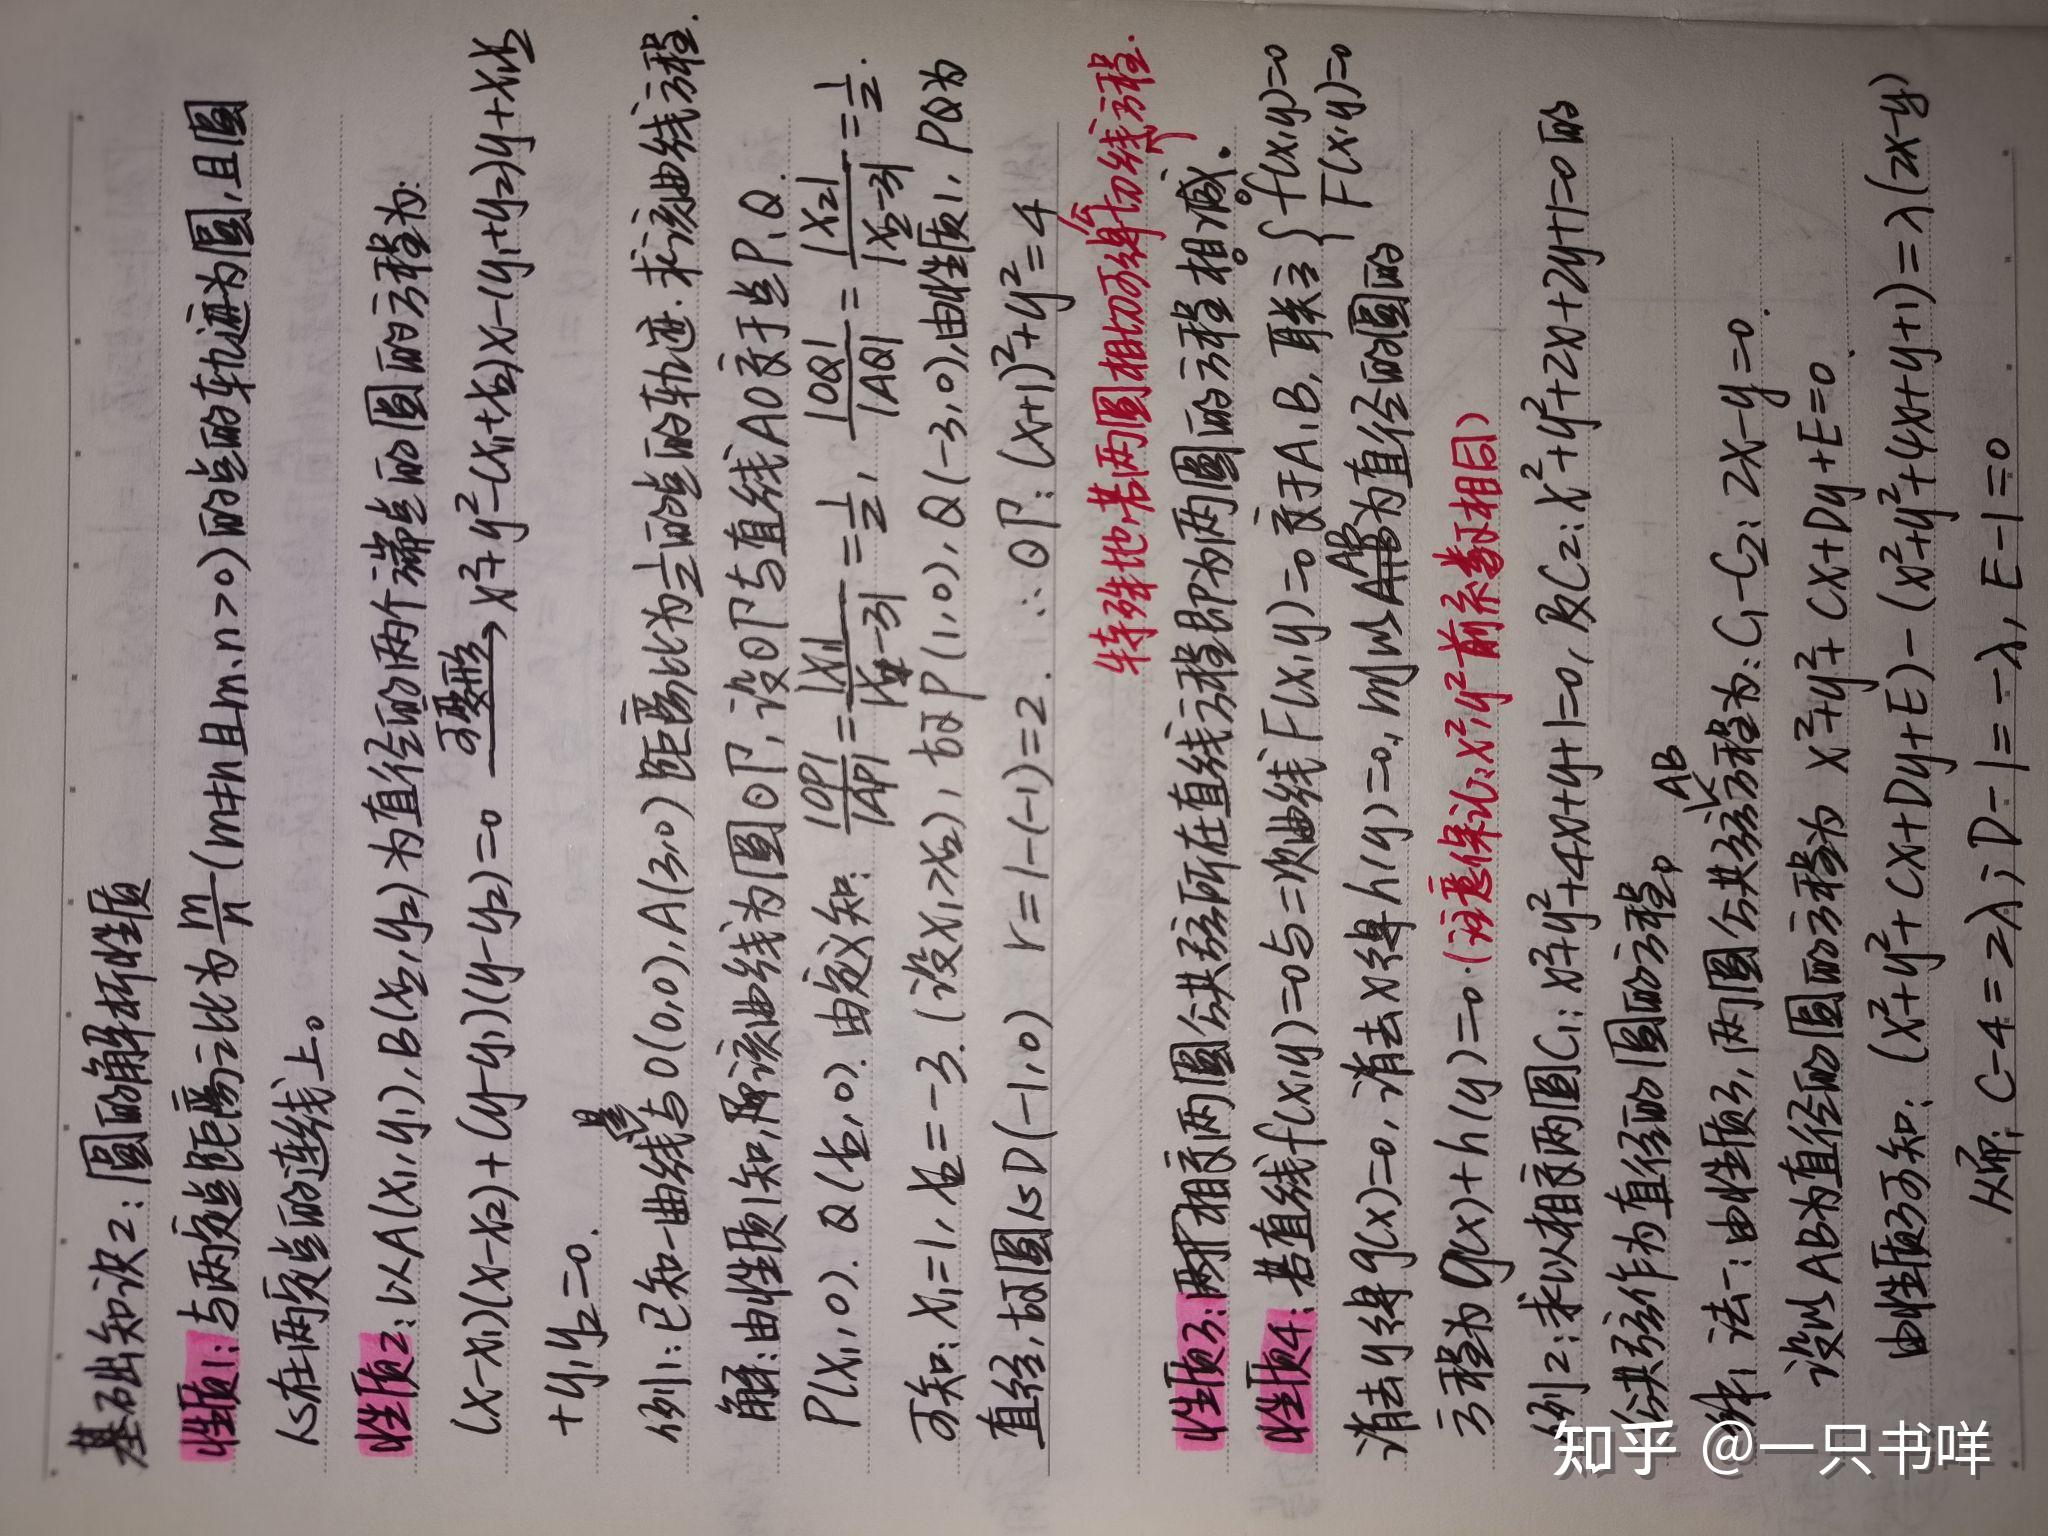 基础知识2：圆的解析性质
性质1：与两定点距离之比为m/n(m≠n且m、n>0)的点的轨迹为圆，且圆
心在两定点的连线上。
性质2：以A(x₁,y₁),B(x₂,y₂)为直径的两个端点的圆的方程为：
(x-x₁)(x-x₂)+(y-y₁)(y-y₂)=0 可变形→ x²+y²-(x₁+x₂)x-(y₁+y₂)y+x₁x₂
+y₁y₂=0.
例1：已知一曲线是与O(0,0),A(3,0)距离比为1/2的点的轨迹.求该曲线方程.
解：由性质1知,该曲线为圆⊙P,设⊙P与直线AO交于点P、Q.
P(x₁,0).Q(x₂,0).由定义知：|OP|/|AP|=|x₁|/|x₁-3|=1/2，|OQ|/|AQ|=|x₂|/|x₂-3|=1/2.
可知：x₁=1,x₂=-3.(设x₁>x₂)，故P(1,0),Q(-3,0),由性质1,PQ为
直径,故圆心D(-1,0) r=1-(-1)=2.∴⊙P：(x+1)²+y²=4
特殊地,若两圆相切可得公切线方程.
性质3：两相交两圆公共弦所在直线方程即为两圆的方程相减。
性质4：若直线f(x,y)=0与二次曲线F(x,y)=0交于A,B,联立{f(x,y)=0 F(x,y)=0
消去y得g(x)=0，消去x得h(y)=0,则以AB为直径的圆的
方程为g(x)+h(y)=0.(注意保证x²,y²前系数相同)
例2：求以相交两圆C₁：x²+y²+4x+y+1=0,及C₂：x²+y²+2x+2y+1=0的
公共弦作为直径的圆的方程。
解，法一：由性质3,两圆公共弦AB方程为：C₁-C₂：2x-y=0.
设以AB为直径的圆的方程为 x²+y²+Cx+Dy+E=0.
由性质3可知：(x²+y²+Cx+Dy+E)-(x²+y²+4x+y+1)=λ(2x-y)
C-4=2λ；D-1=-λ，E-1=0
知乎 @一只书咩